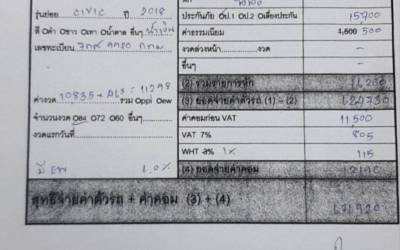 รุ่นย่อย CIVIC ปี 2018
สี Oดำ Oขาว Oเทา Oน้ำตาล อื่นๆ น้ำเงิน
เลขทะเบียน
ค่างวด 10835 + = 11298 รวม Oppi Oew
จำนวนงวด O84 O72 O60 อื่นๆ
งวดแรกวันที่
ประกันภัย Oป.1 Oป.2 Oเลื่องประกัน 15900
ค่าธรรมเนียม 1,500 500
งวดล่วงหน้า งวด -
อื่นๆ
(2) รวมรายการหัก
(3) ยอดจ่ายค่าตัวรถ (1) - (2)
ค่าคอมก่อน VAT 11,500
VAT 7% 805
WHT 3% 1% 115
(4) ยอดจ่ายค่าคอม 12190
สุทธิจ่ายค่าตัวรถ + ค่าคอม (3) + (4)